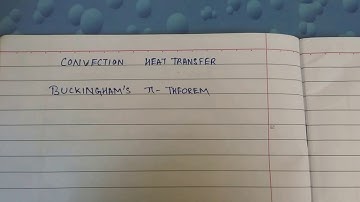 CONVECTION HEAT TRANSFER
BUCKINGHAM'S π- THEOREM